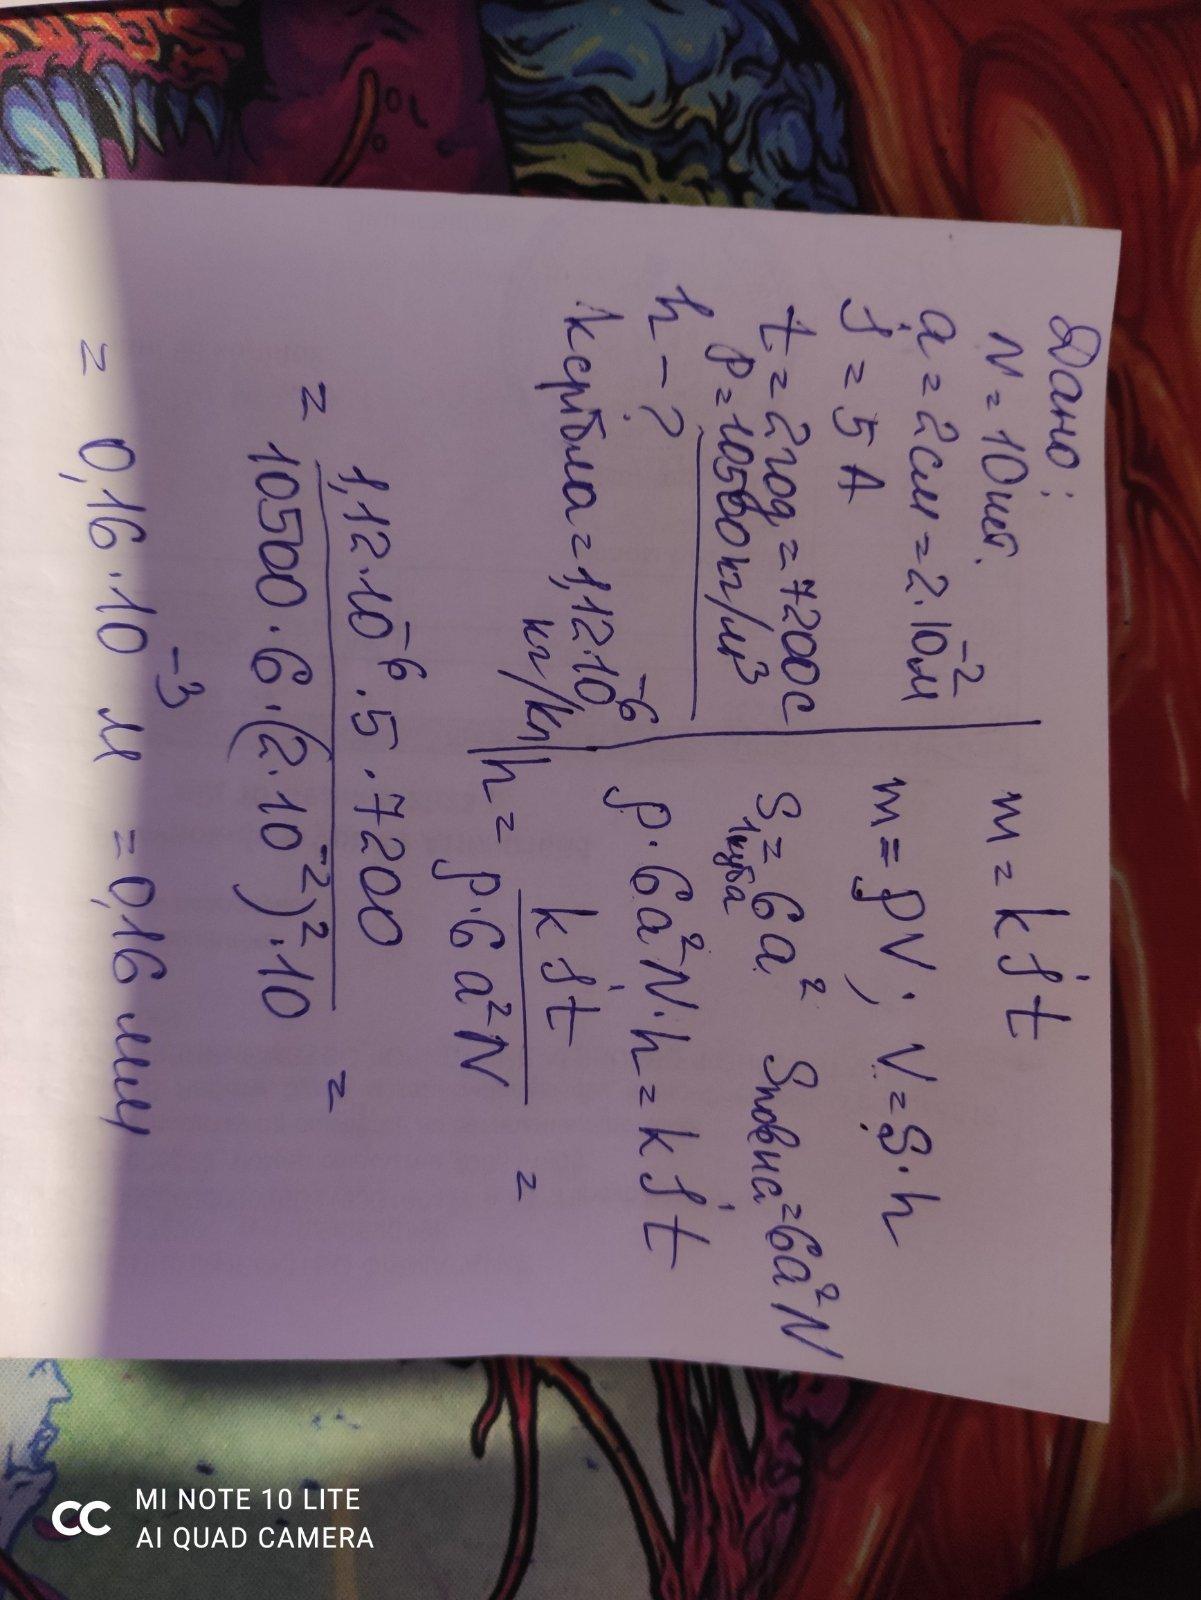 Дано:
N = 10 шт.
a = 2 см = 2·10⁻² м
J = 5 A
t = 2 год = 7200 с
ρ = 10500 кг/м³
h - ?
k срібла = 1,12·10⁻⁶
кг/кл
m = k J t
m = ρV; V = S·h
S₁куба = 6a² Sповна = 6a²N
ρ·6a²N·h = k J t
h = k J t / ρ·6a²N =
= 1,12·10⁻⁶·5·7200 / 10500·6·(2·10⁻²)²·10 =
= 0,16·10⁻³ м = 0,16 мм
MI NOTE 10 LITE
AI QUAD CAMERA